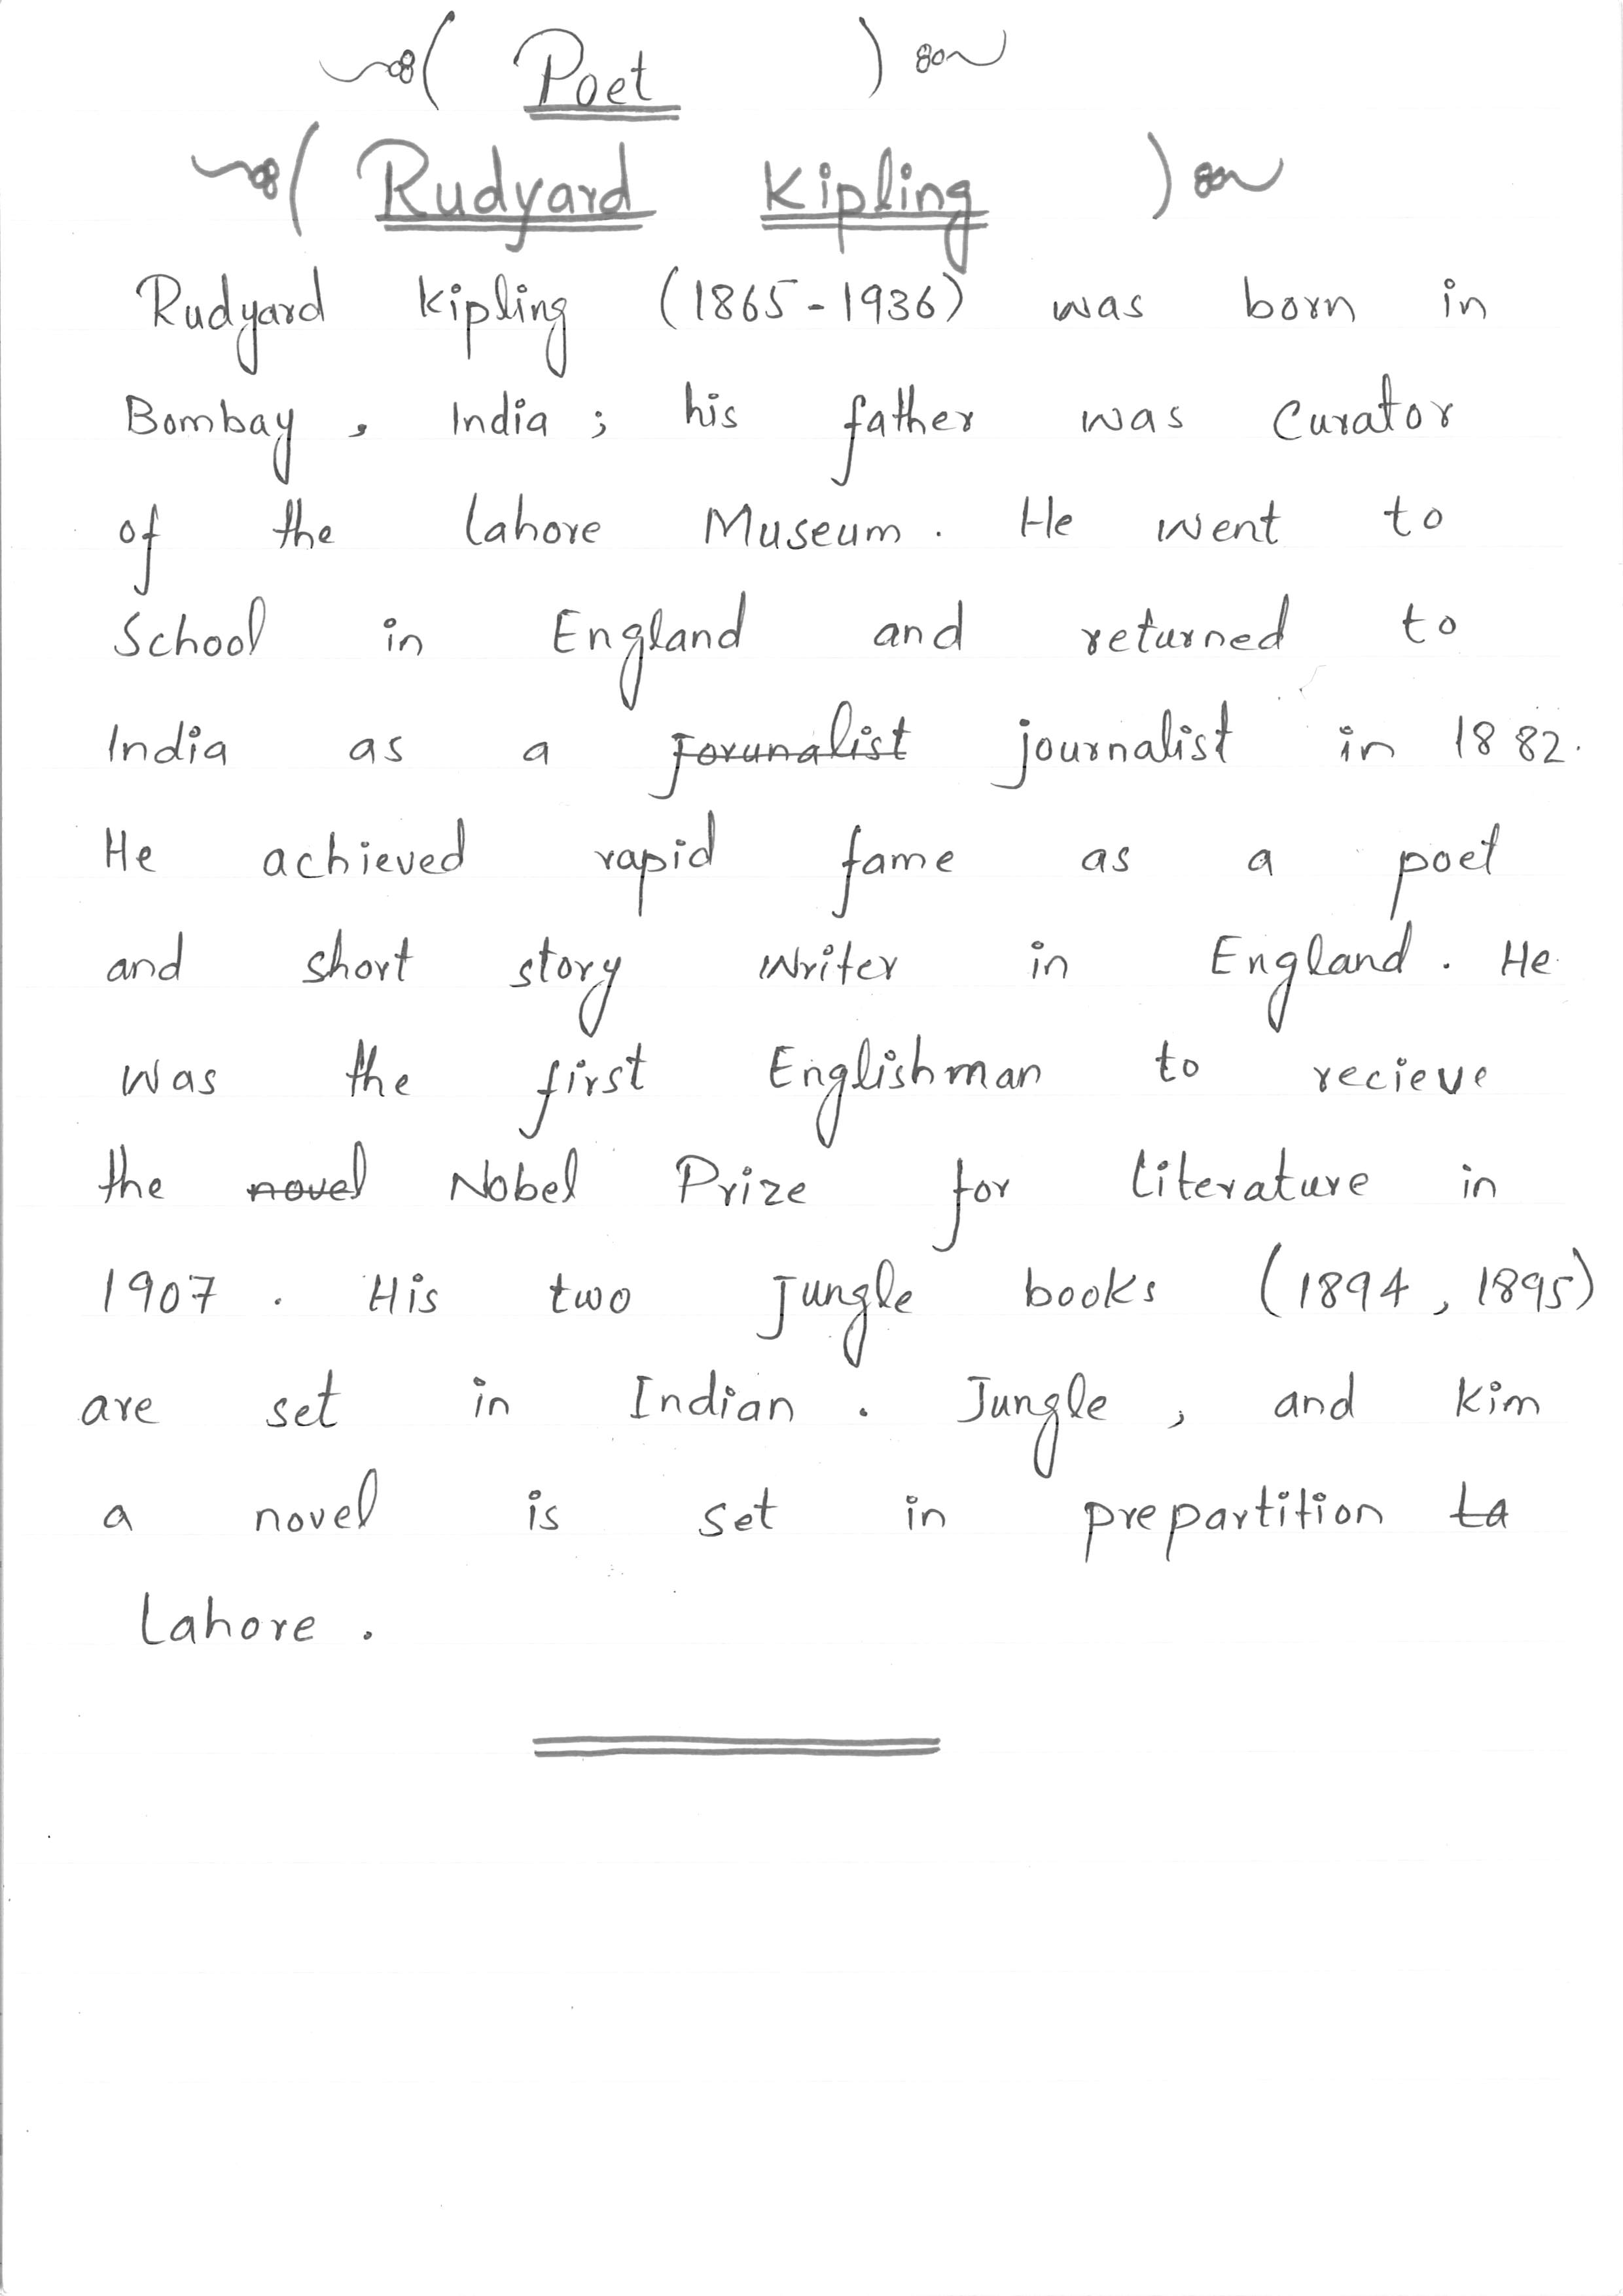 ( Poet )
( Rudyard Kipling )
Rudyard Kipling (1865-1936) was born in
Bombay, India; his father was Curator
of the Lahore Museum. He went to
School in England and returned to
India as a Jorunalist journalist in 1882.
He achieved rapid fame as a poet
and short story writer in England. He
was the first Englishman to recieve
the novel Nobel Prize for literature in
1907. His two Jungle books (1894, 1895)
are set in Indian. Jungle, and Kim
a novel is set in prepartition La
Lahore.